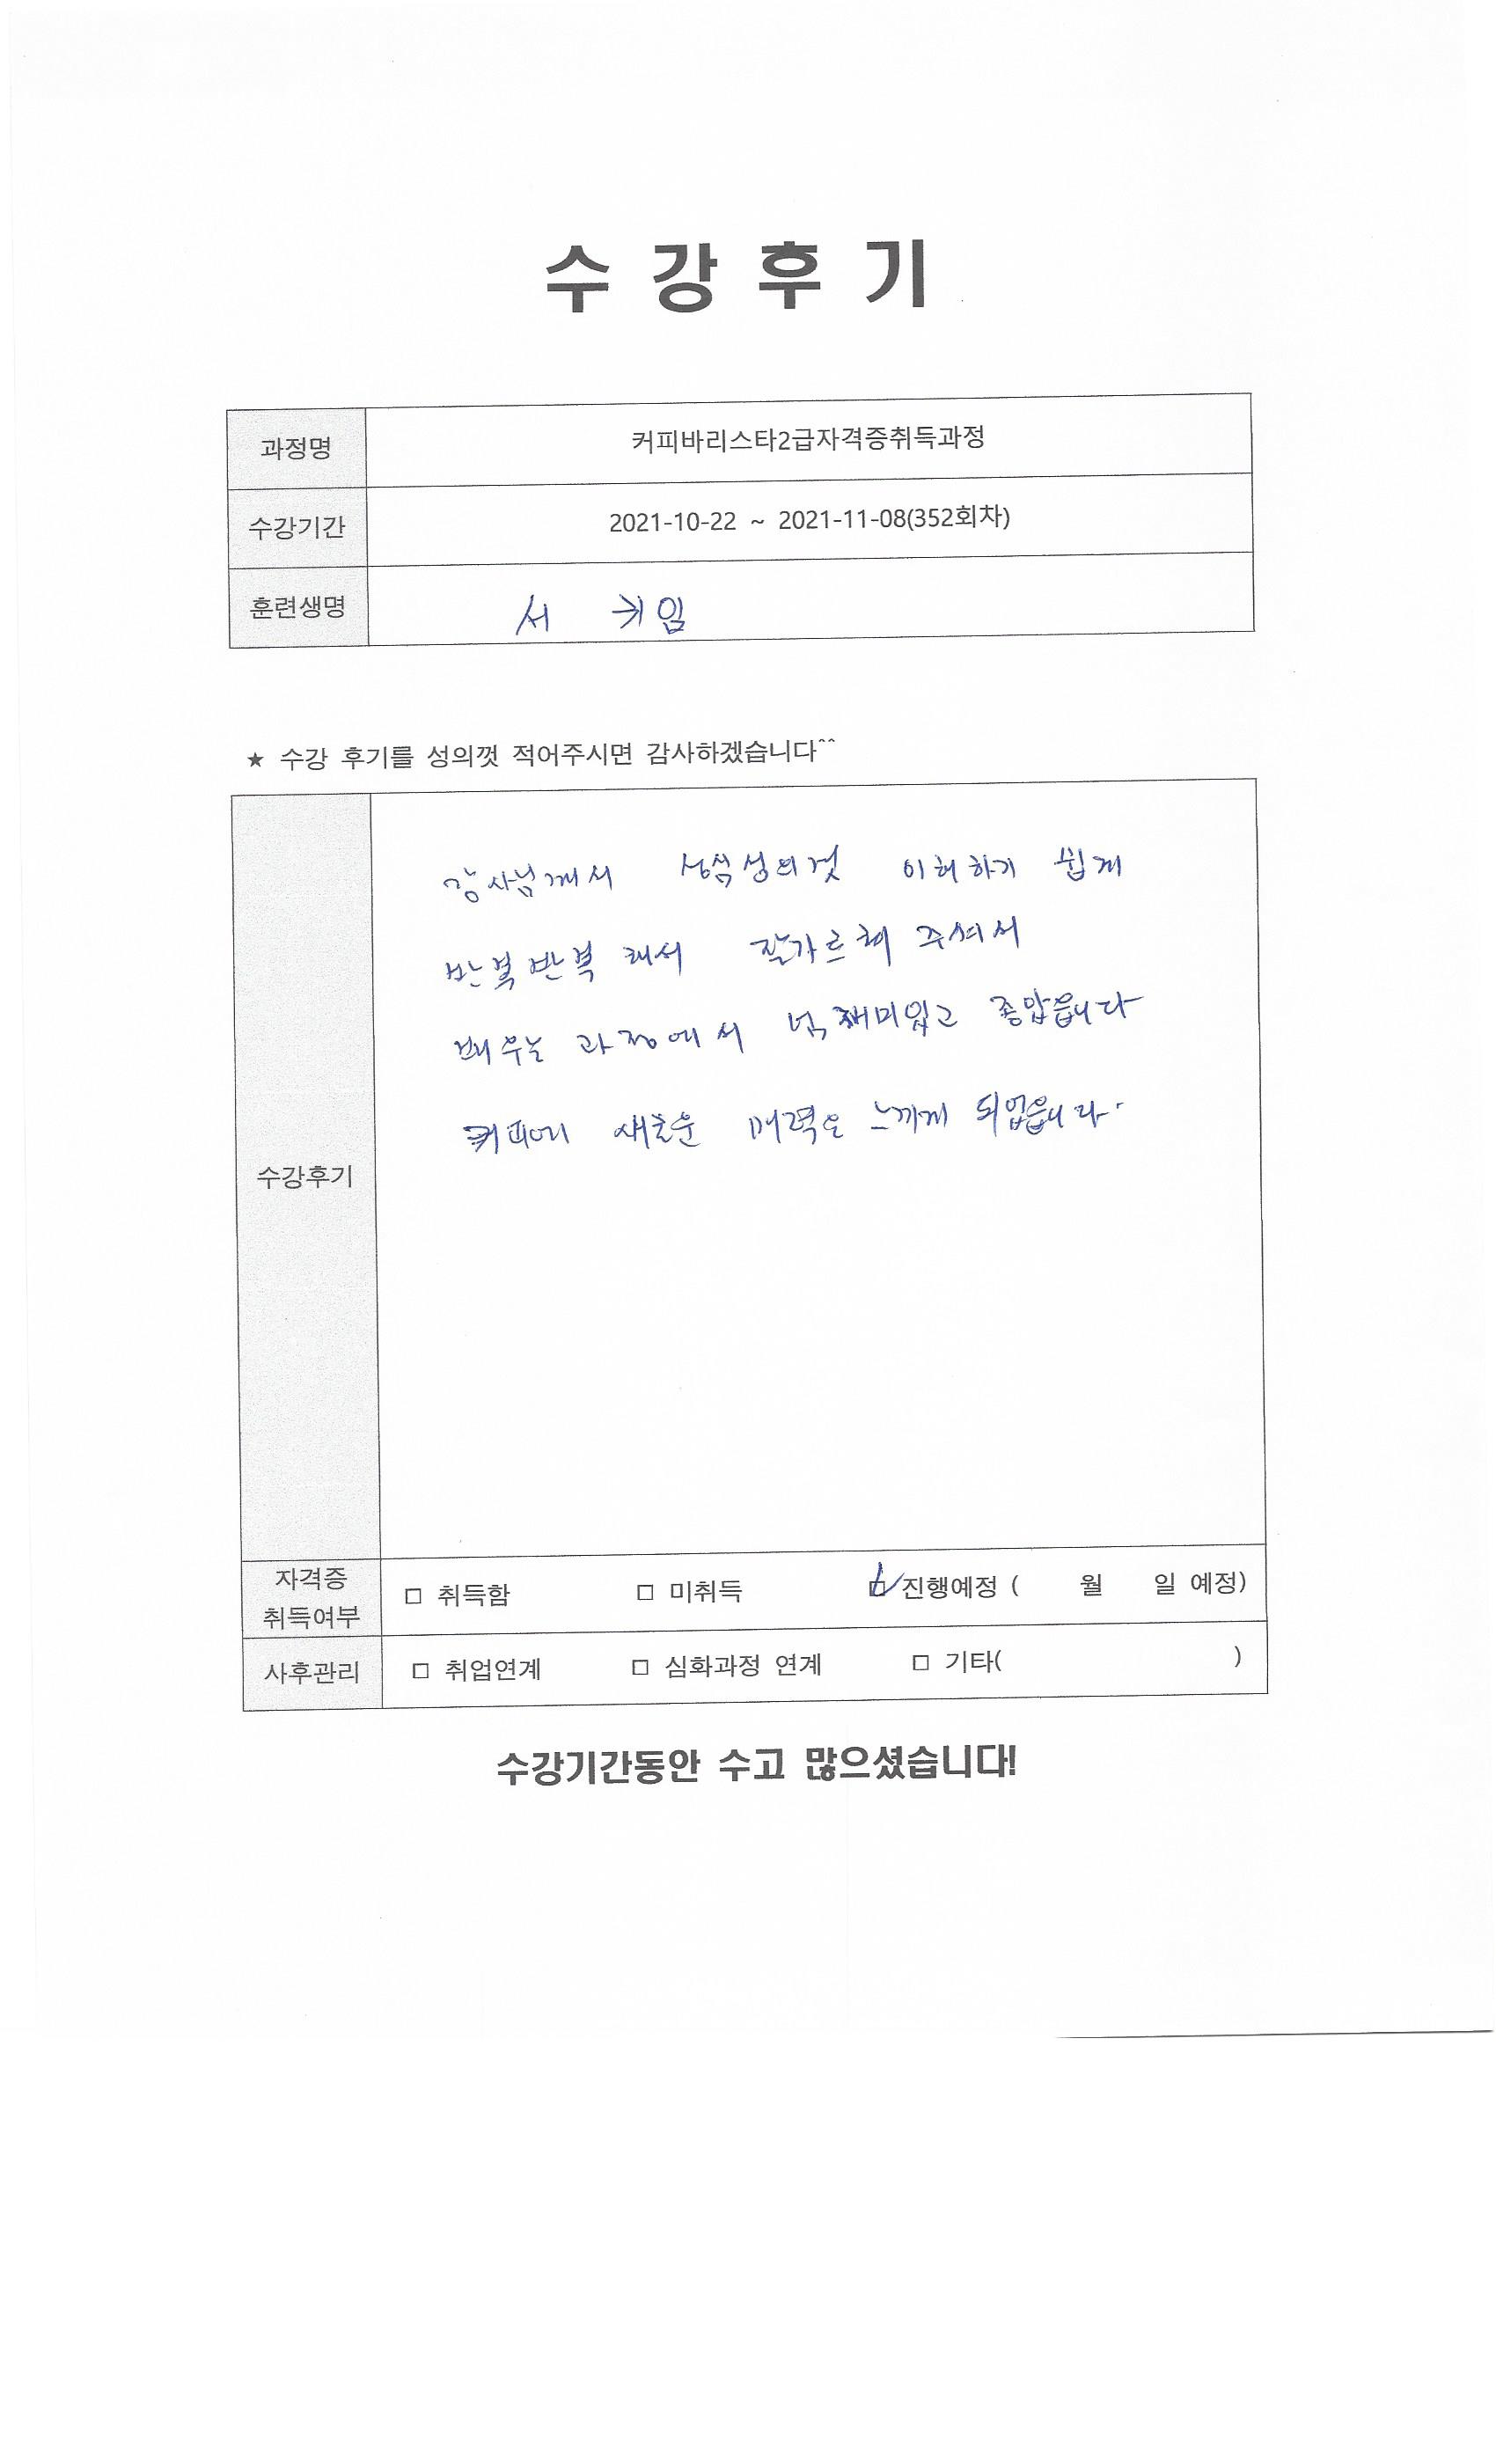 수 강 후 기
과정명 커피바리스타2급자격증취득과정
수강기간 2021-10-22 ~ 2021-11-08(352회차)
훈련생명 서
★ 수강 후기를 성의껏 적어주시면 감사하겠습니다^^
강사님께서 성의껏 이해하기 쉽게
반복반복 해서 잘가르쳐 주셔서
배우는 과정에서 넘 재미있고 좋았읍니다
커피에 새로운 매력을 느끼게 되었읍니다.
수강후기
자격증
취득여부
□ 취득함 □ 미취득 □ 진행예정 ( 월 일 예정)
사후관리 □ 취업연계 □ 심화과정 연계 □ 기타( )
수강기간동안 수고 많으셨습니다!